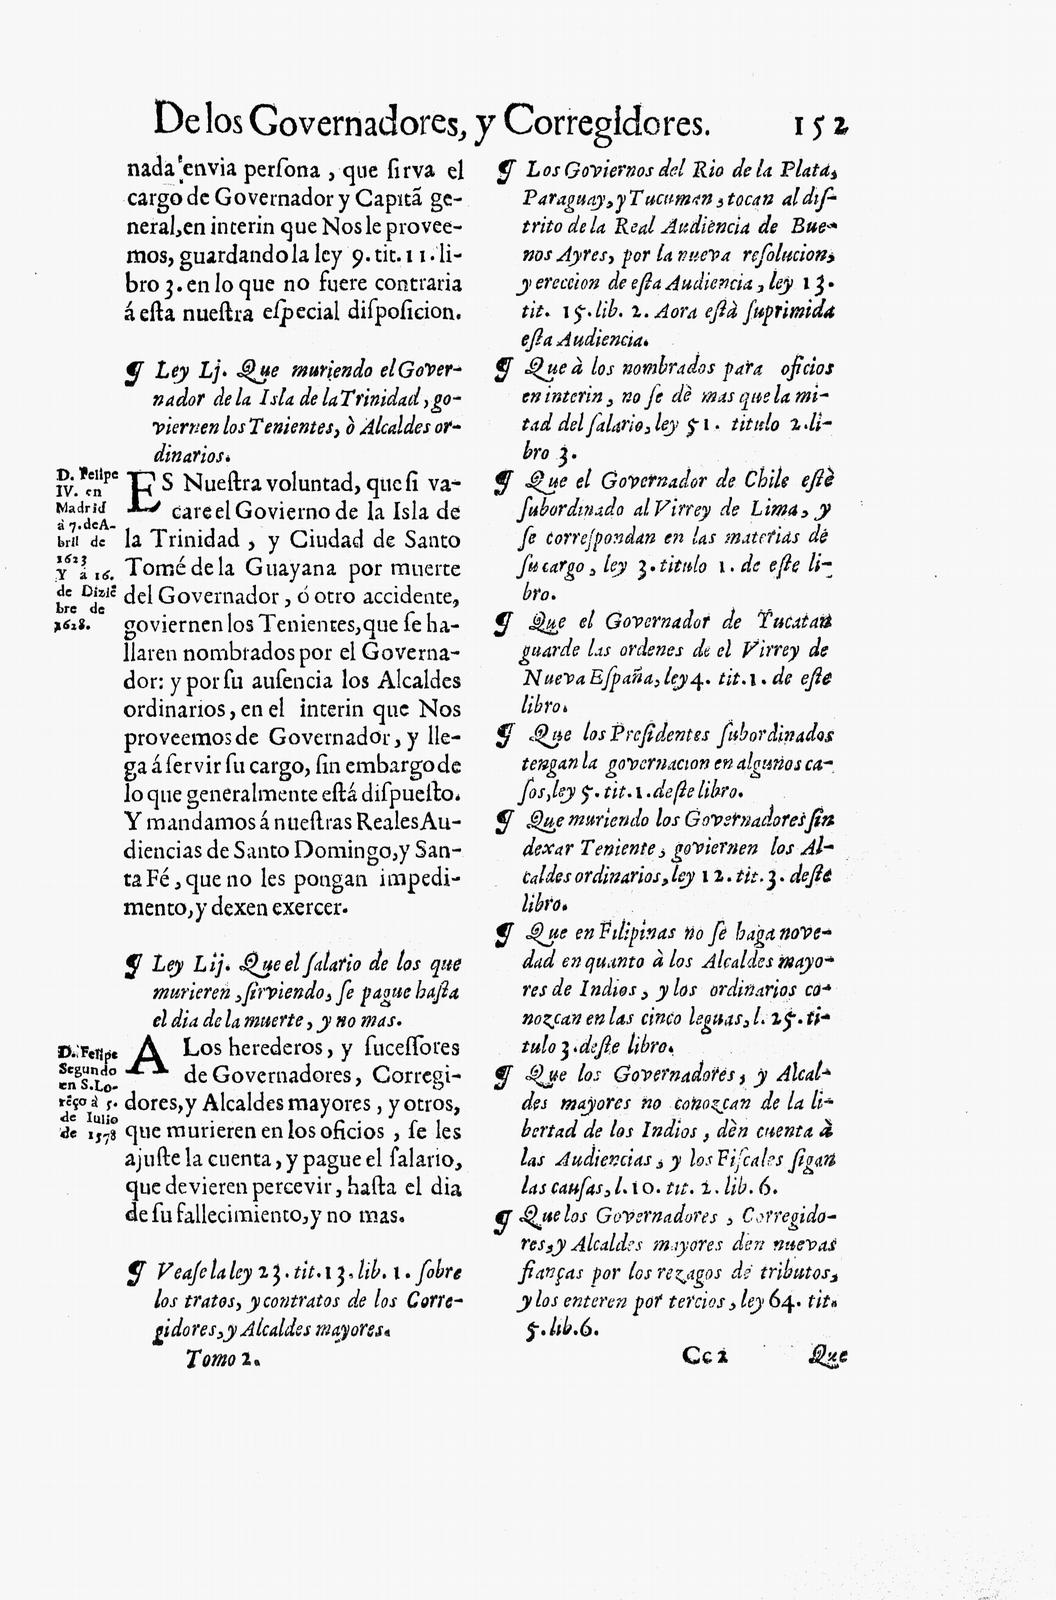 De los Governadores, y Corregidores. 152
nada envia persona, que sirva el
cargo de Governador y Capitã ge-
neral, en interin que Nos le provee-
mos, guardando la ley 9. tit. 11. li-
bro 3. en lo que no fuere contraria
á esta nuestra especial disposicion.
¶ Ley Lj. Que muriendo el Gover-
nador de la Isla de la Trinidad, go-
viernen los Tenientes, ò Alcaldes or-
dinarios.
D. Felipe
IV. en
Madrid
à 7. de A-
bril de
1623
Y à 16.
de Diziẽ
bre de
1628.
ES Nuestra voluntad, que si va-
care el Govierno de la Isla de
la Trinidad, y Ciudad de Santo
Tomé de la Guayana por muerte
del Governador, ó otro accidente,
goviernen los Tenientes, que se ha-
llaren nombrados por el Governa-
dor: y por su ausencia los Alcaldes
ordinarios, en el interin que Nos
proveemos de Governador, y lle-
ga á servir su cargo, sin embargo de
lo que generalmente está dispuesto.
Y mandamos á nuestras Reales Au-
diencias de Santo Domingo, y San-
ta Fé, que no les pongan impedi-
mento, y dexen exercer.
¶ Ley Lij. Que el salario de los que
murieren, sirviendo, se pague hasta
el dia de la muerte, y no mas.
D. Felipe
Segundo
en S. Lo-
rẽço à 5.
de Iulio
de 1578
A Los herederos, y sucessores
de Governadores, Corregi-
dores, y Alcaldes mayores, y otros,
que murieren en los oficios, se les
ajuste la cuenta, y pague el salario,
que devieren percevir, hasta el dia
de su fallecimiento, y no mas.
¶ Vease la ley 23. tit. 13. lib. 1. sobre
los tratos, y contratos de los Corre-
gidores, y Alcaldes mayores.
Tomo 2.
¶ Los Goviernos del Rio de la Plata,
Paraguay, y Tucuman, tocan al dis-
trito de la Real Audiencia de Bue-
nos Ayres, por la nueva resolucion,
y ereccion de esta Audiencia, ley 13.
tit. 15. lib. 2. Aora està suprimida
esta Audiencia.
¶ Que à los nombrados para oficios
en interin, no se dè mas que la mi-
tad del salario, ley 51. titulo 2. li-
bro 3.
¶ Que el Governador de Chile estè
subordinado al Virrey de Lima, y
se correspondan en las materias de
su cargo, ley 3. titulo 1. de este li-
bro.
¶ Que el Governador de Yucatan
guarde las ordenes de el Virrey de
Nueva España, ley 4. tit. 1. de este
libro.
¶ Que los Presidentes subordinados
tengan la governacion en algunos ca-
sos, ley 5. tit. 1. deste libro.
¶ Que muriendo los Governadores sin
dexar Teniente, goviernen los Al-
caldes ordinarios, ley 12. tit. 3. deste
libro.
¶ Que en Filipinas no se haga nove-
dad en quanto à los Alcaldes mayo-
res de Indios, y los ordinarios co-
nozcan en las cinco leguas, l. 25. ti-
tulo 3. deste libro.
¶ Que los Governadores, y Alcal-
des mayores no conozcan de la li-
bertad de los Indios, dèn cuenta à
las Audiencias, y los Fiscales sigan
las causas, l. 10. tit. 2. lib. 6.
¶ Que los Governadores, Corregido-
res, y Alcaldes mayores den nuevas
fianças por los rezagos de tributos,
y los enteren por tercios, ley 64. tit.
5. lib. 6.
Cc 2 Que